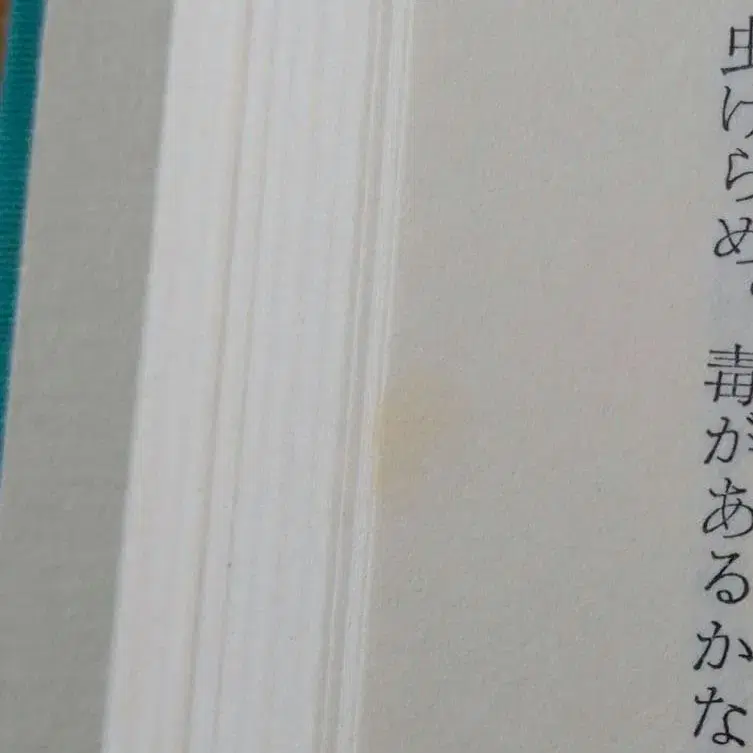 虫けらめ。毒があるかな